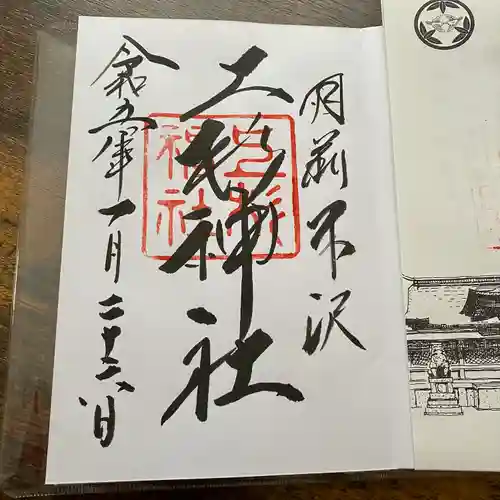 羽前米沢
上杉神社
令和五年一月二十六日
上杉
神社